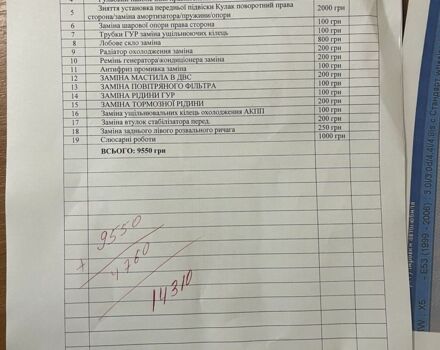 5 Зняття установка передньої підвіски Кулак поворотний права 2000 грн
сторона/заміна амортизатора/пружини/опори
6 Заміна шарової опори права сторона 100 грн
7 Трубки ГУР заміна ущільнюючих кілець 100 грн
8 Лобове скло заміна 800 грн
9 Радіатор охолодження заміна 200 грн
10 Ремінь генератора/кондиціонера заміна 200 грн
11 Антифриз промивка заміна 100 грн
12 ЗАМІНА МАСТИЛА В ДВС 200 грн
13 ЗАМІНА ПОВІТРЯНОГО ФІЛЬТРА 100 грн
14 ЗАМІНА РІДИНИ ГУР 200 грн
15 ЗАМІНА ТОРМОЗНОЇ РІДИНИ 200 грн
16 Заміна ущільнювальних кілець охолодження АКПП 100 грн
17 Заміна втулок стабілізатора перед. 200 грн
18 Заміна заднього лівого розвального ричага 250 грн
19 Слюсарні роботи 1000 грн
ВСЬОГО: 9550 грн
9550
+
4760
14310
X5 - E53 (1999 - 2006)